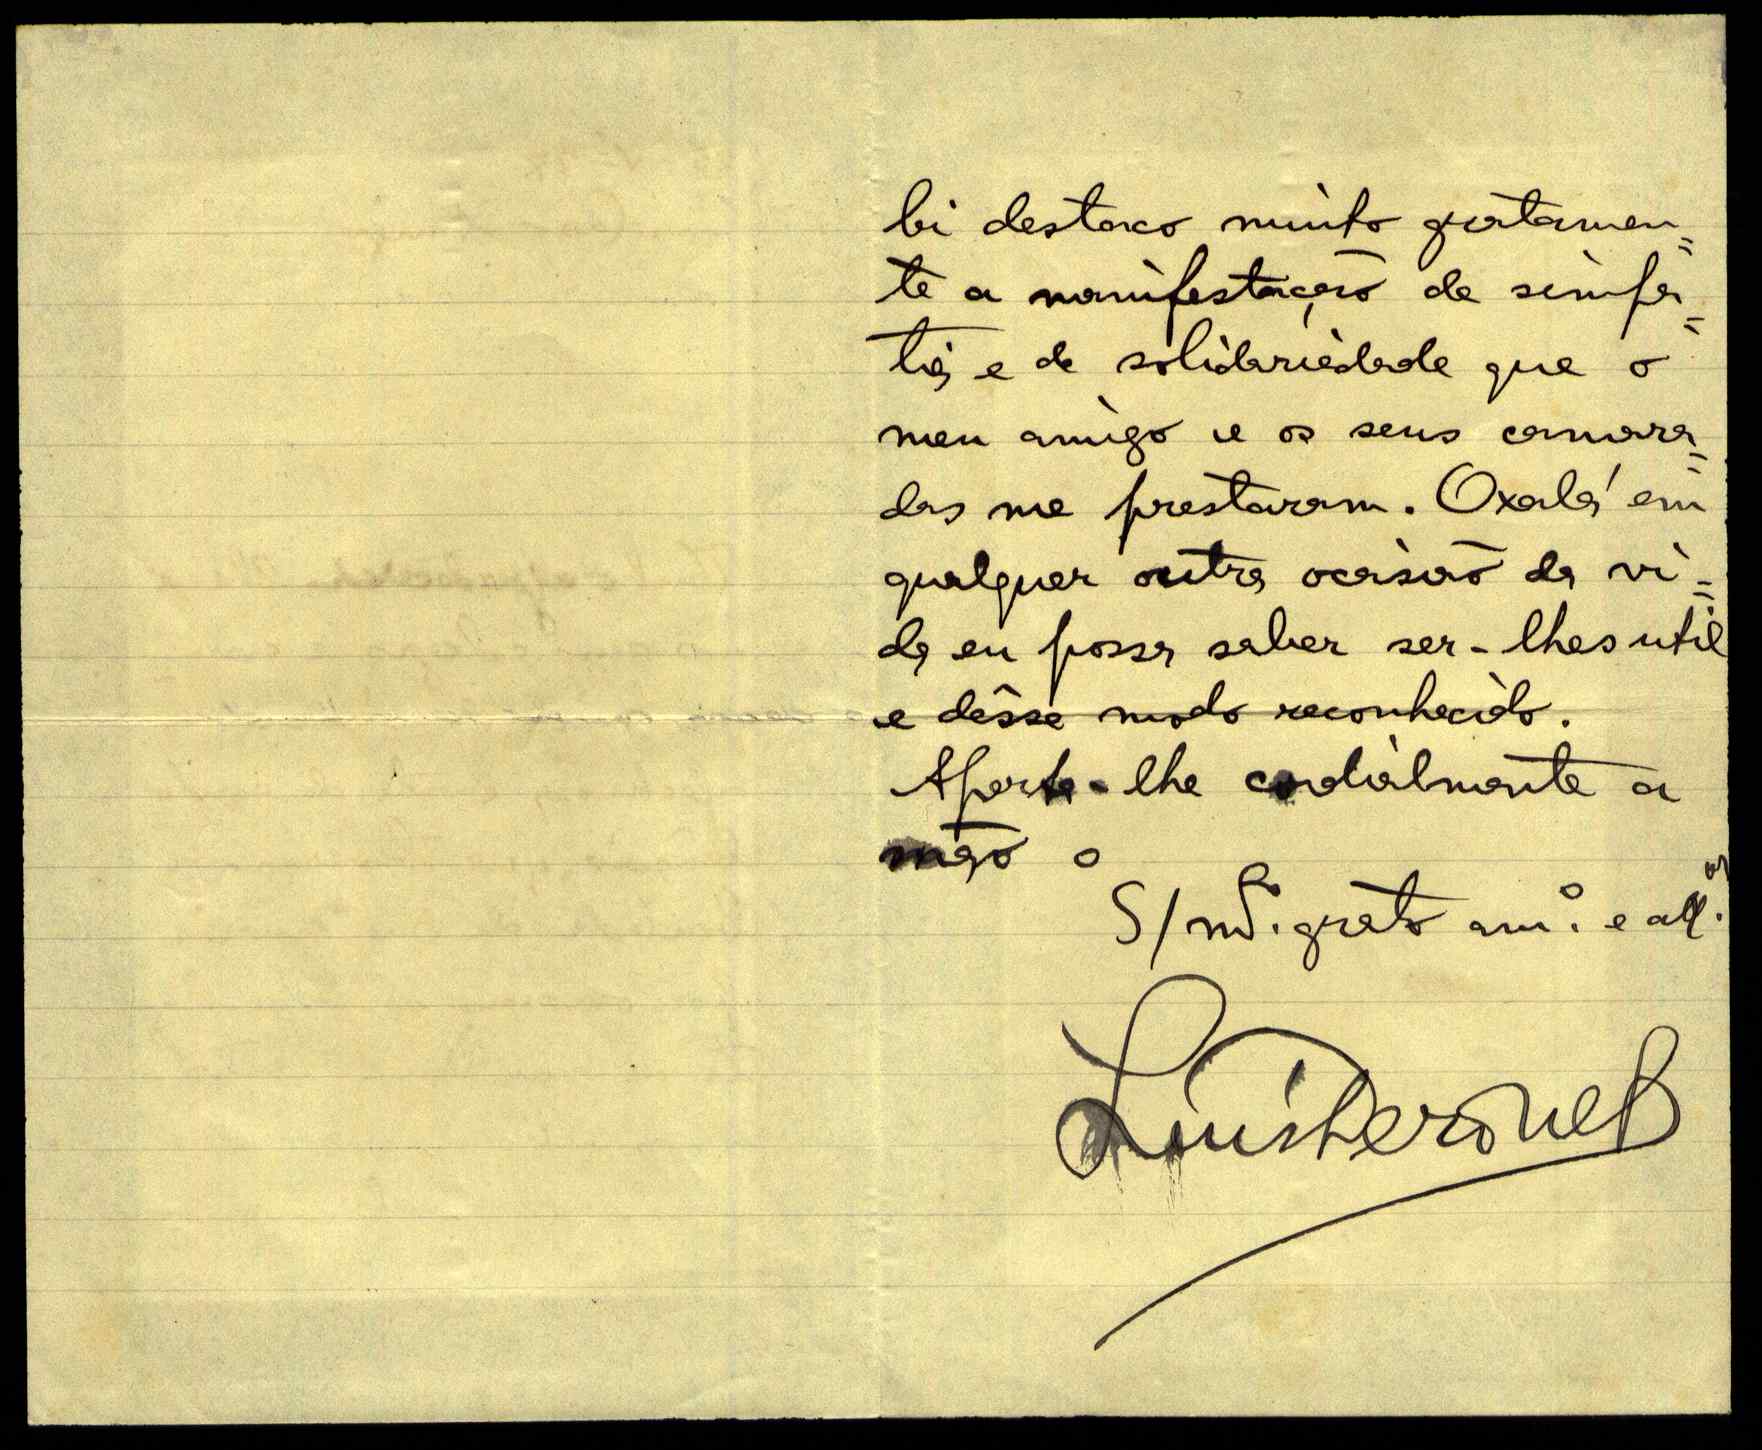 bi destaco muito gratamen=
te a manifestação de simpa=
tia e de solidariedade que o
meu amigo e os seus camara=
das me prestaram. Oxalá em
qualquer outra ocasião da vi=
da eu possa saber ser-lhes util
e dêsse modo reconhecido.
Aperta-lhe cordialmente a
mão o
S/ mt.º grato am.º e